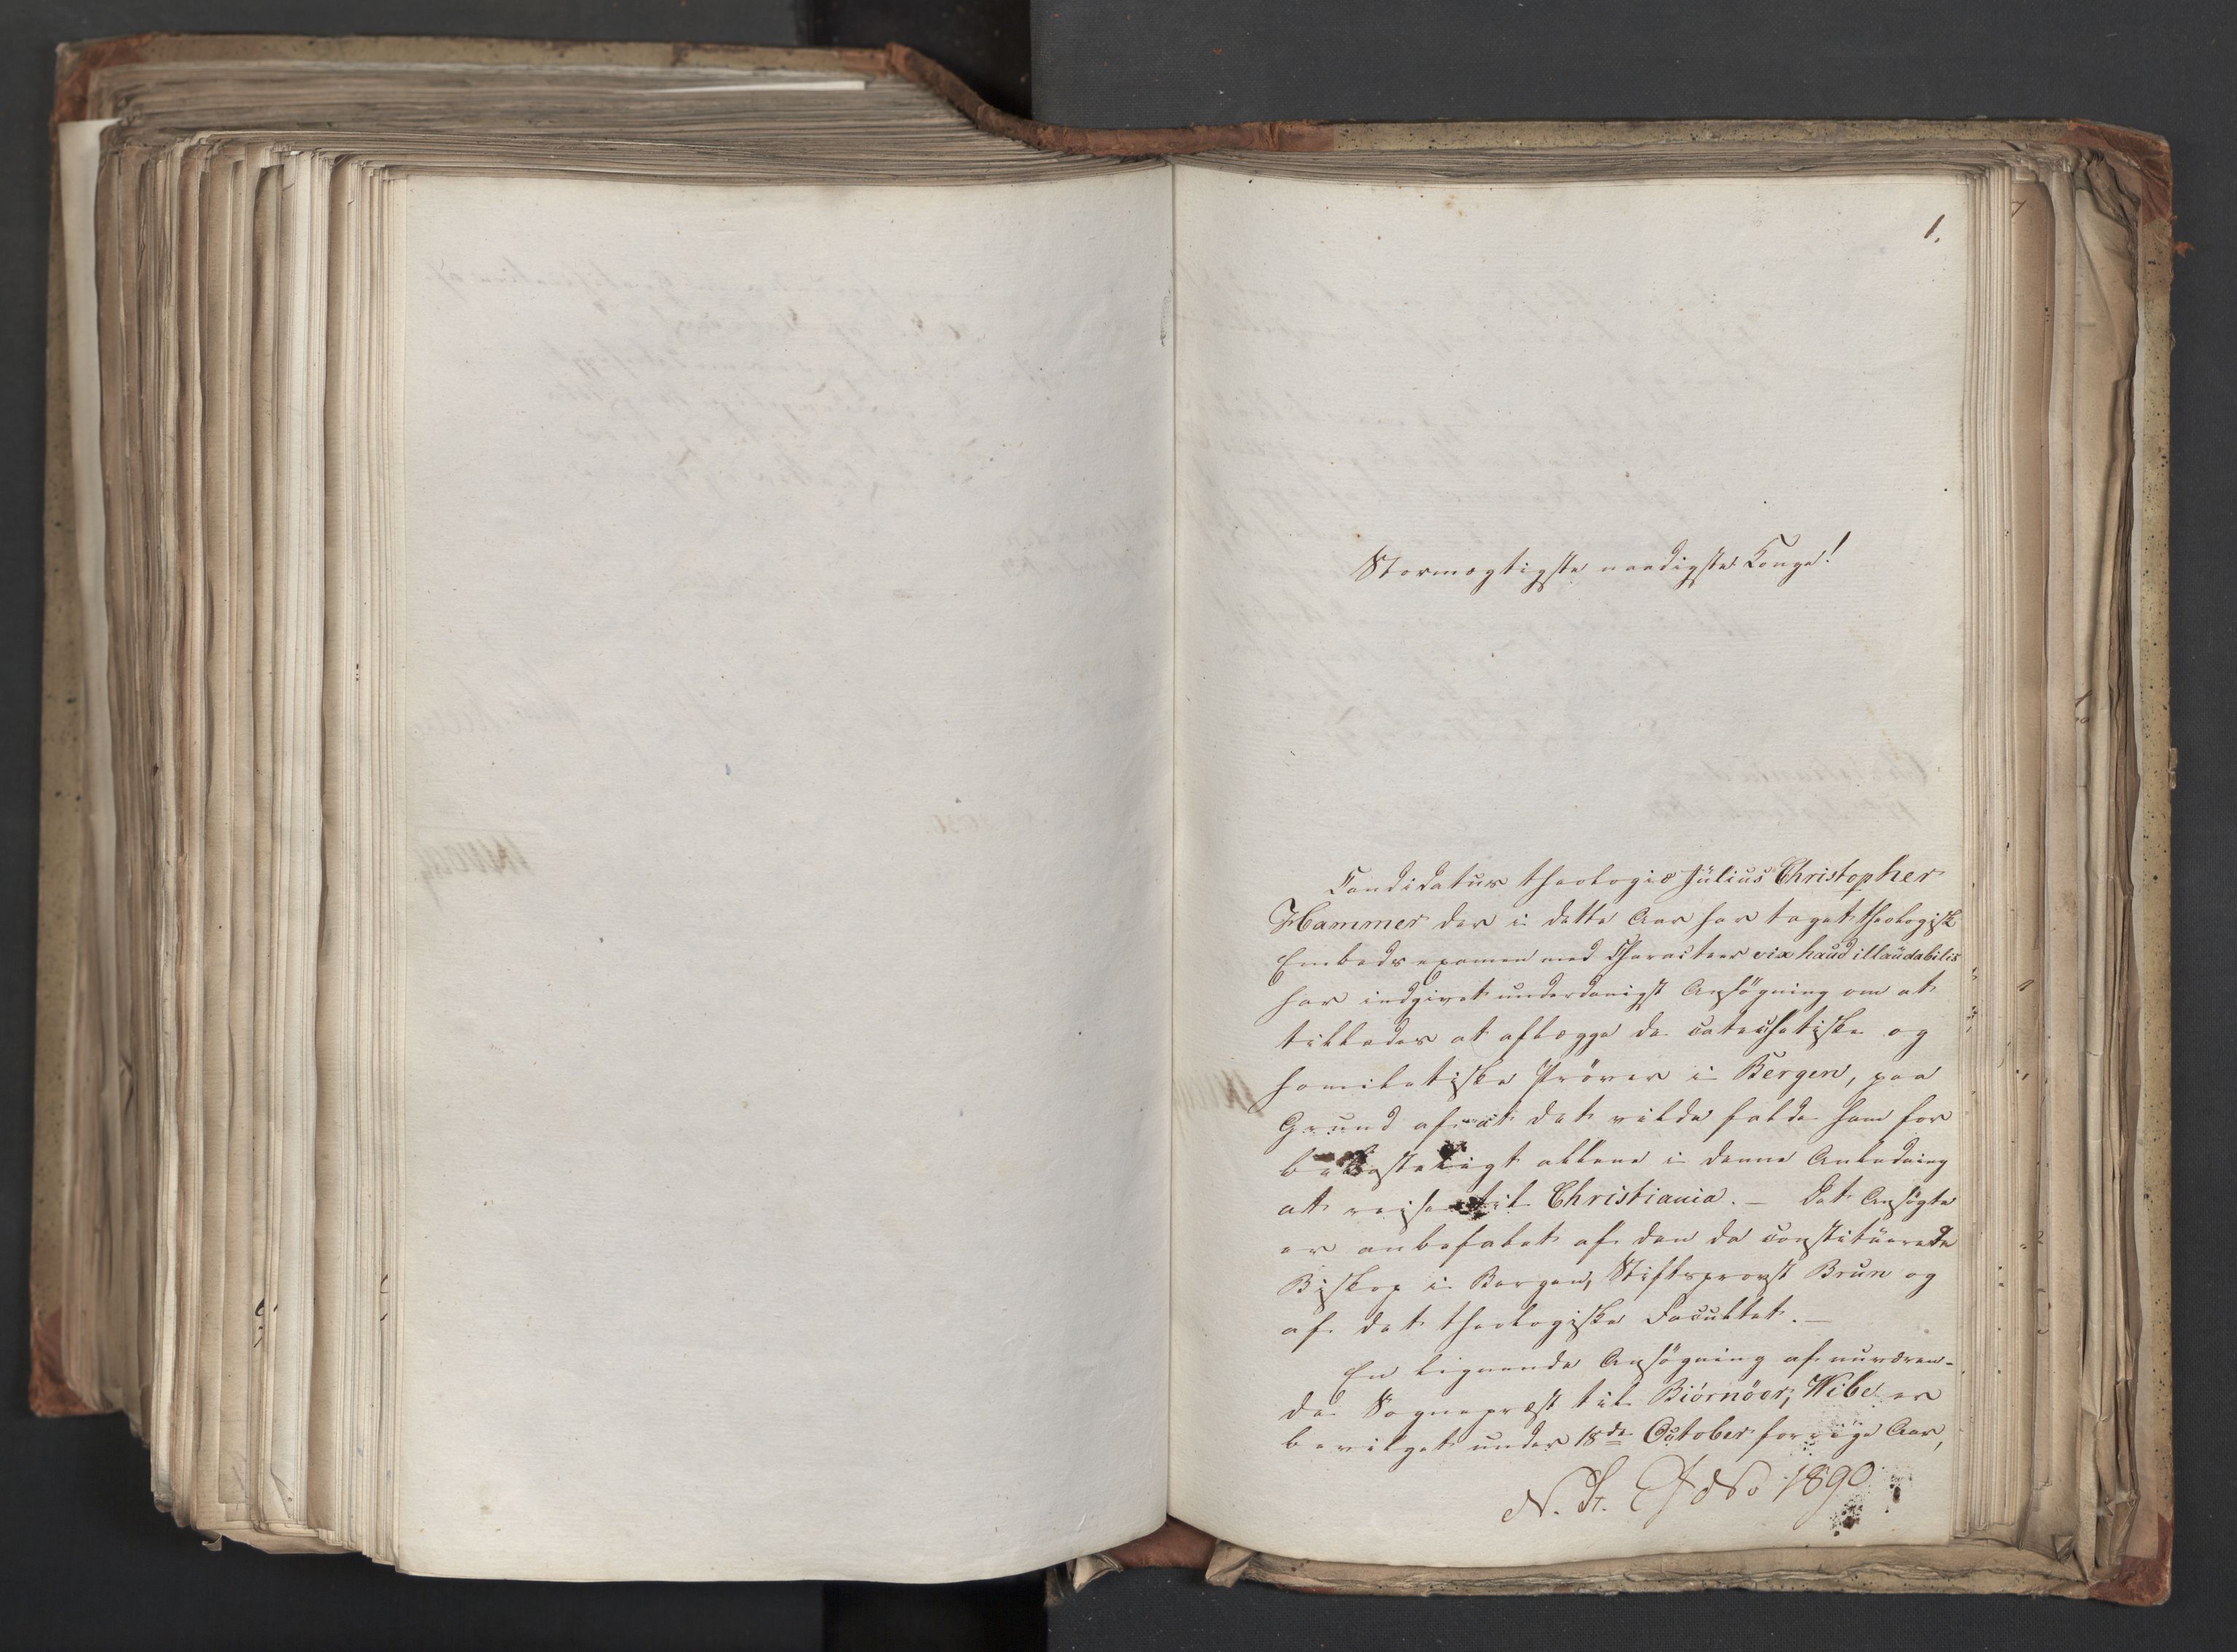 1.
Stormægtigste naadigste Konge!
Candidatus theologiæ Julius Christopher
Hammer der i dette Aar har taget theologisk
Embedsexamen med Characteer vix haud illaudabilis
har indgivet underdanigst Ansøgning om at
tillades at aflægge de catechetiske og
homiletiske Prøver i Bergen, paa
Grund af at det vilde falde ham for
bekosteligt allene i denne Anledning
at reise til Christiania. – Det Ansøgte
er anbefalet af den da constituerede
Biskop i Bergen, Stiftsprovst Brun og
af det theologiske Facultet. –
En lignende Ansøgning af nuværen-
de Sognepræst til Biörnöer, Wibe er
bevilget under 18de October forrige Aar,
No 1890